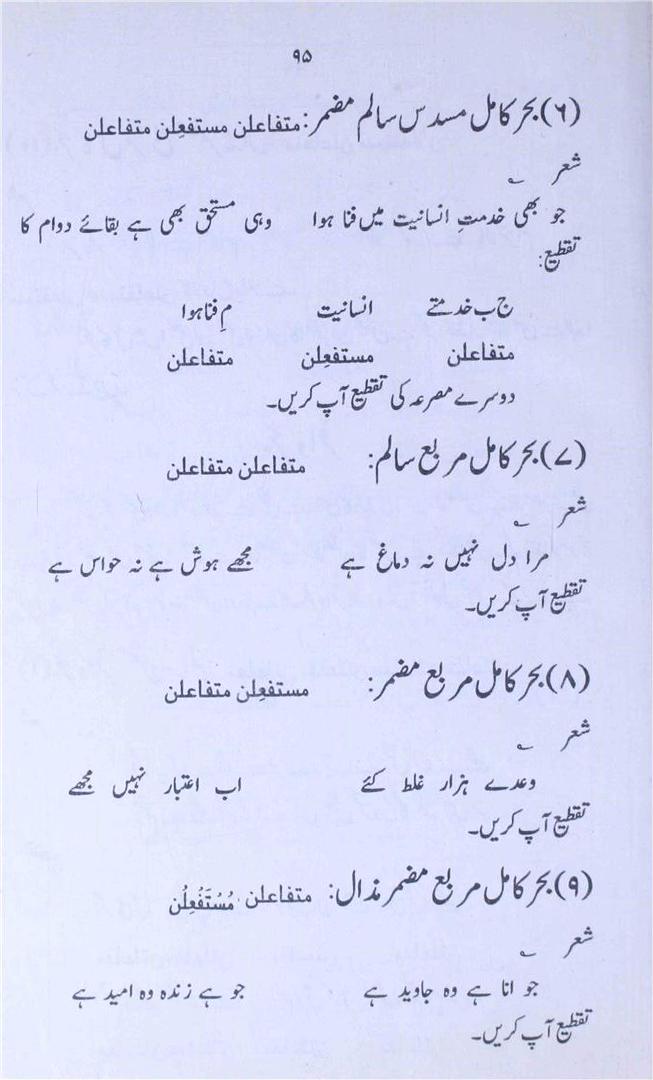 ۹۵
(۶) بحر کامل مسدس سالم مضمر: متفاعلن مستفعِلن متفاعلن
شعر ؎
جو بھی خدمتِ انسانیت میں فنا ہوا وہی مستحق بھی ہے بقائے دوام کا
تقطیع:
ج ب خدمتے انسانیت مِ فنا ہوا
متفاعلن مستفعِلن متفاعلن
دوسرے مصرعہ کی تقطیع آپ کریں۔
(۷) بحر کامل مربع سالم: متفاعلن متفاعلن
شعر ؎
مرا دل نہیں نہ دماغ ہے مجھے ہوش ہے نہ حواس ہے
تقطیع آپ کریں۔
(۸) بحر کامل مربع مضمر: مستفعِلن متفاعلن
شعر ؎
وعدے ہزار غلط کئے اب اعتبار نہیں مجھے
تقطیع آپ کریں۔
(۹) بحر کامل مربع مضمر مذال: متفاعلن مُسْتَفْعِلُن
شعر ؎
جو انا ہے وہ جاوید ہے جو ہے زندہ وہ امید ہے
تقطیع آپ کریں۔